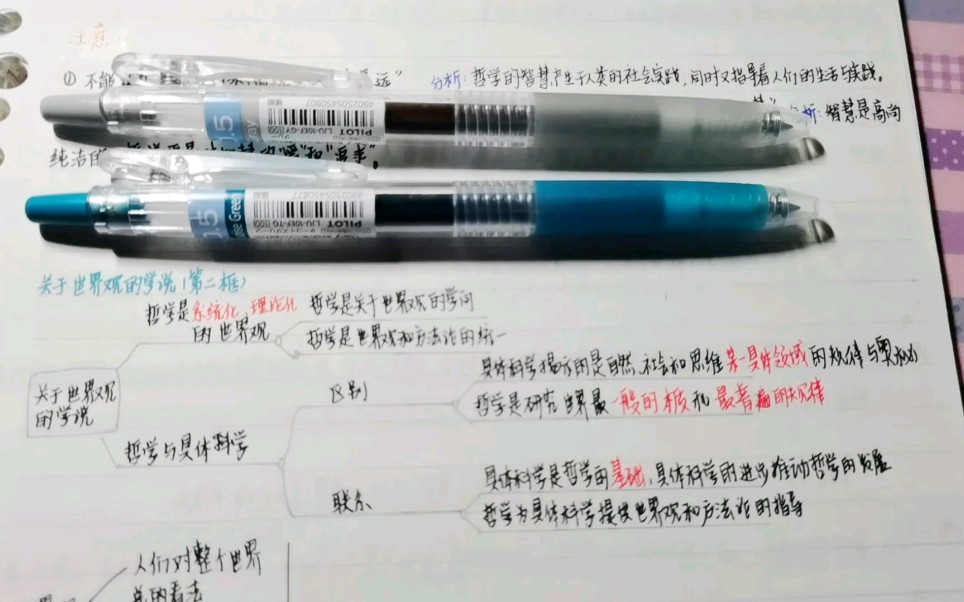 注意
① 不能
远”
分析: 哲学的智慧产生于人类的社会实践, 同时又指导着人们的生活与实践。
析: 智慧是高尚
纯洁的
0.5
4902505450907
PILOT
LJU-10EF-GY
0.5
4902505450877
PILOT
LJU-10EF-TG
关于世界观的学说(第二框)
哲学是系统化、理论化
的世界观
哲学是关于世界观的学问
哲学是世界观和方法论的统一
关于世界观
的学说
哲学与具体科学
区别
具体科学揭示的是自然、社会和思维某一具体领域的规律与奥秘
哲学是研究世界最一般的本质和最普遍的规律
联系
具体科学是哲学的基础, 具体科学的进步推动哲学的发展
哲学为具体科学提供世界观和方法论的指导
人们对整个世界
总的看法